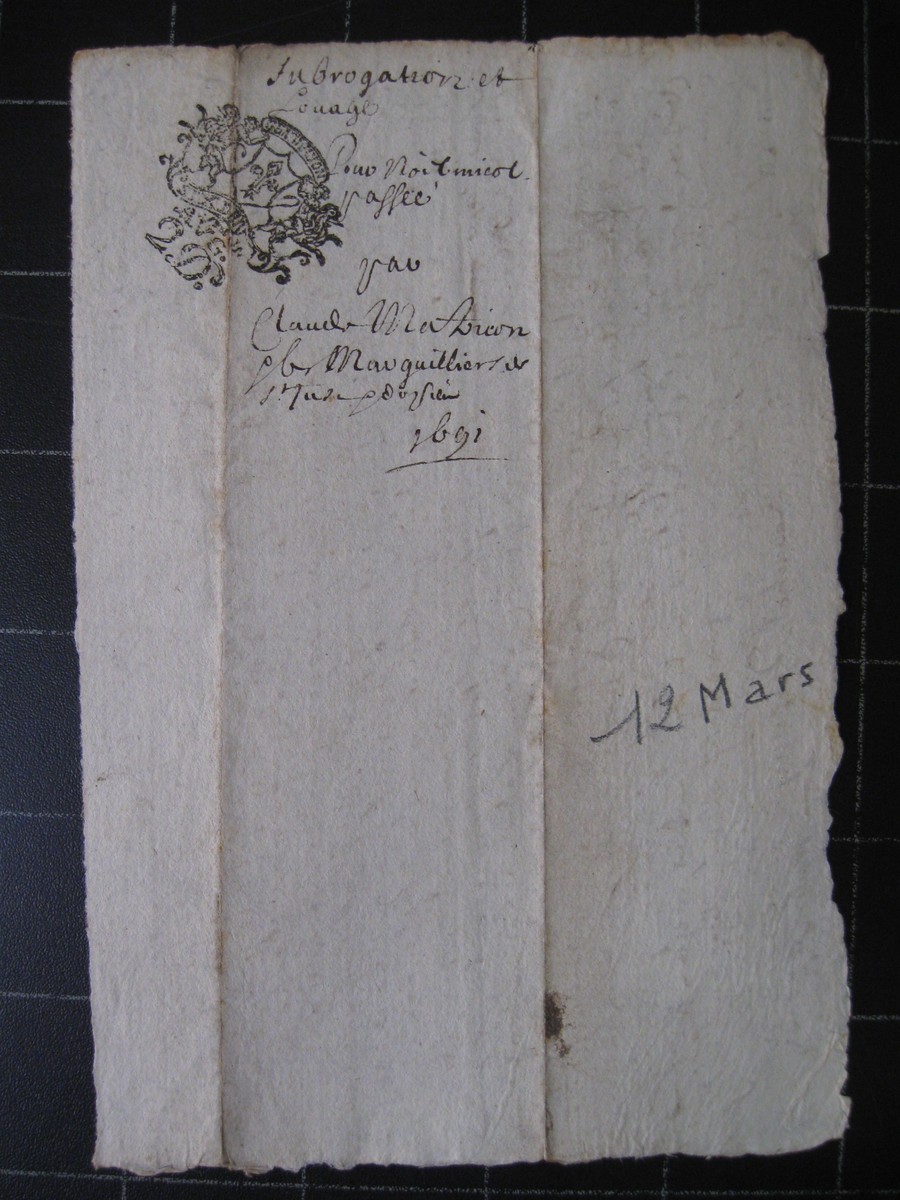 Subrogation et
Louage
Pour Noël micol
passée
par
Claude Mathieon
Marguilliers de
St Just
1691
12 Mars